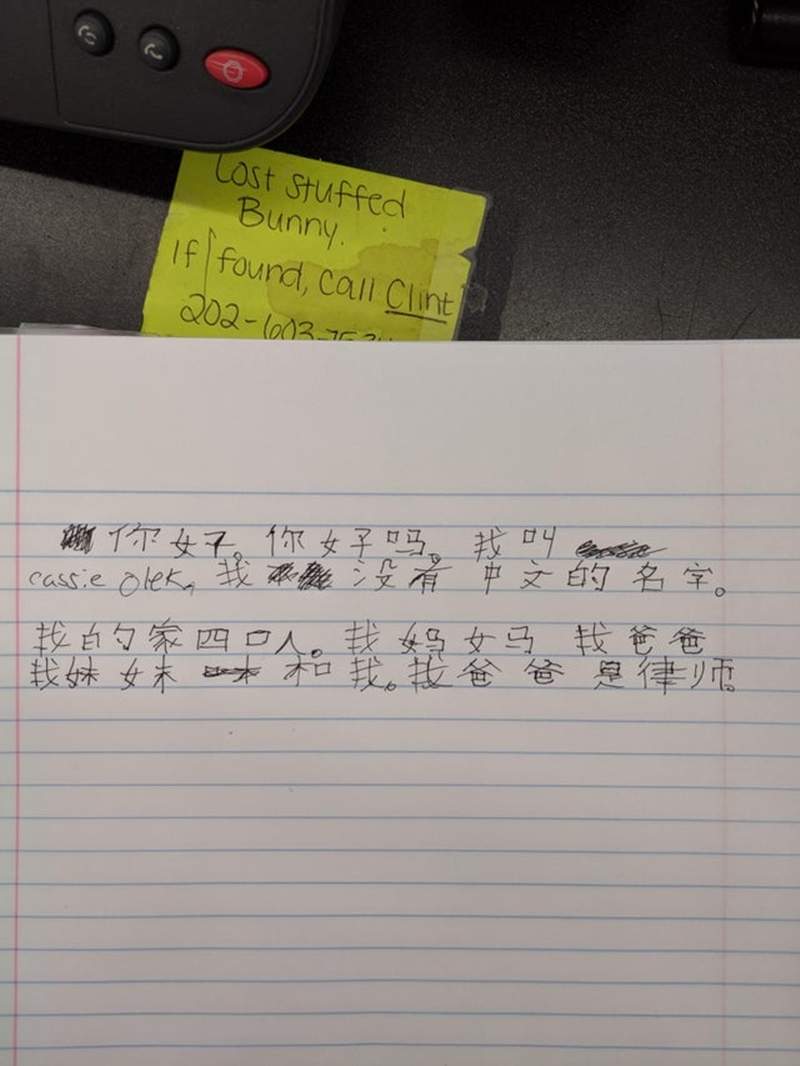 Lost stuffed
Bunny.
If found, call Clint
202-603-
你好。你好吗。我叫
cassie olek, 我 没有 中文的名字。
我的家四口人。我妈妈 我爸爸
我妹妹 和我。我爸爸是律师。